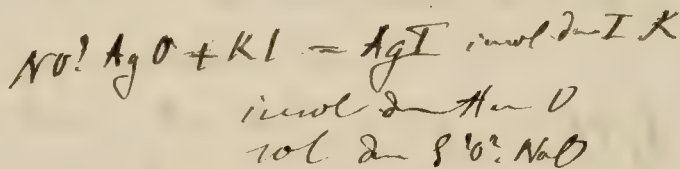 NO⁵ AgO + KI = AgI insol. dans IK
insol dans Am O
sol. dans S²O² NaO